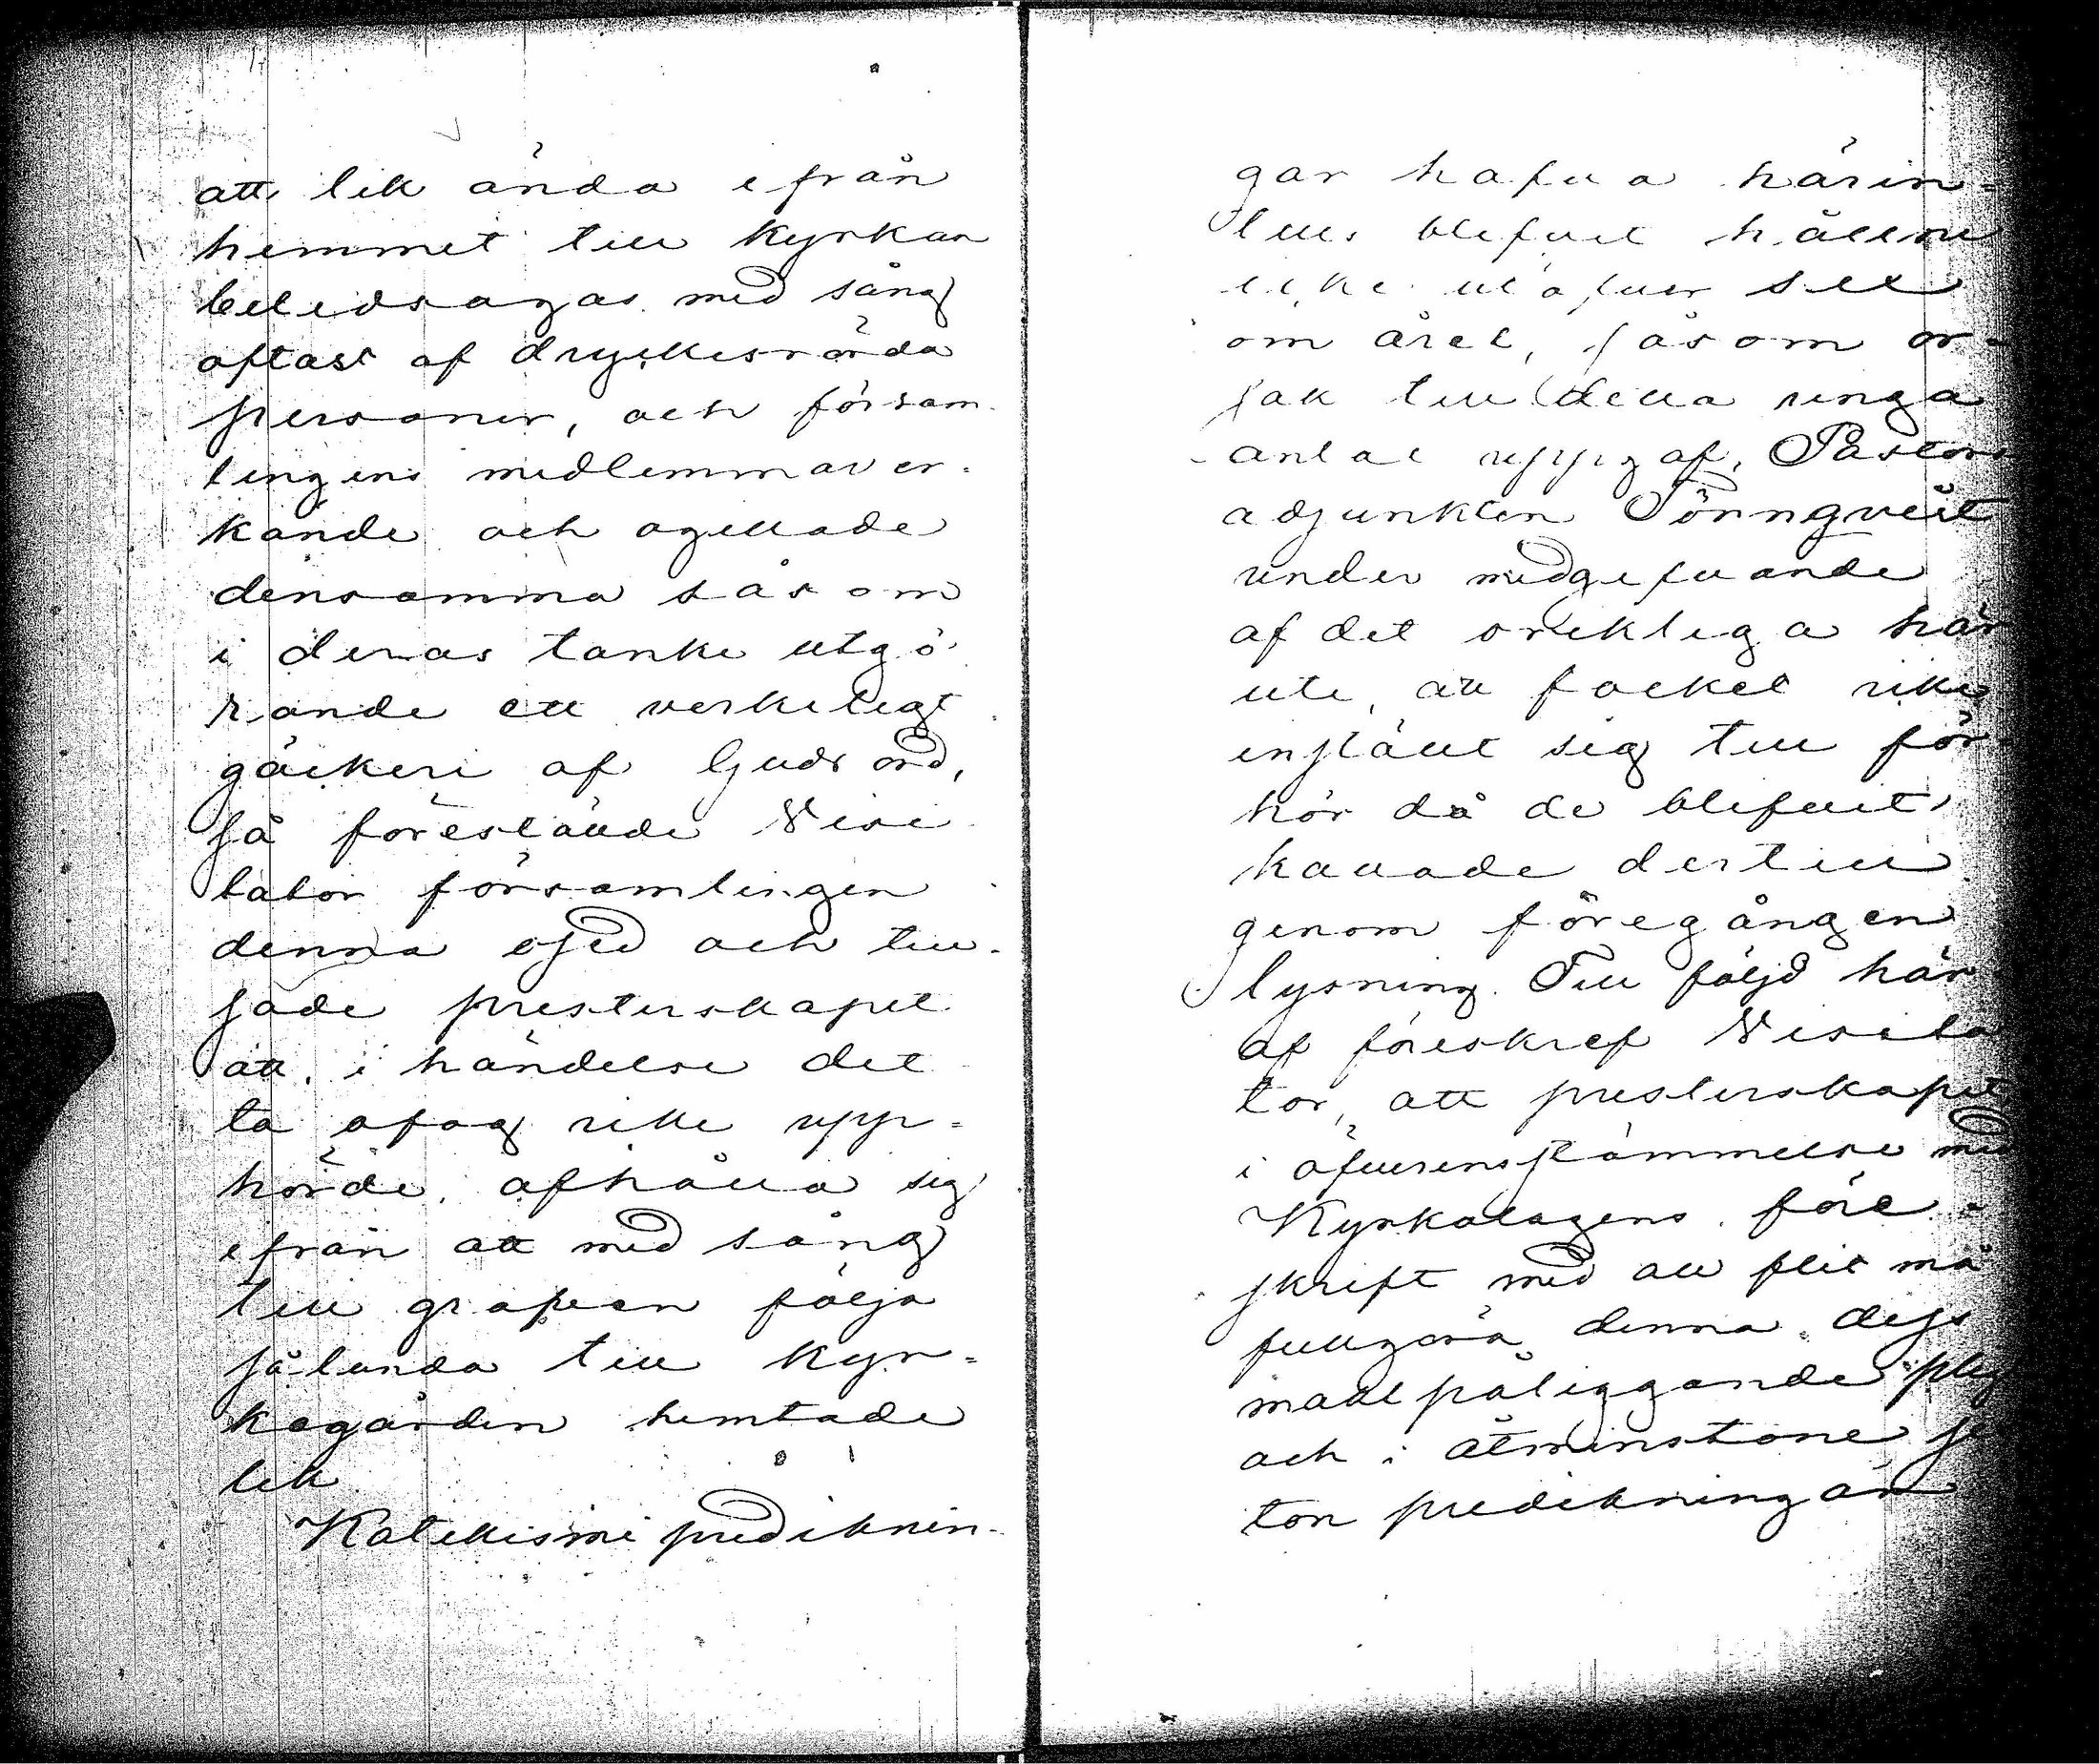 att lik ända ifrån
hemmet till kyrkan
beledsagas med sång
oftast af dryckesrörda
personer, och försam
lingens medlemmar er-
kände och ogillade
densamma såsom
i deras tanke utgö
rande ett verkeligt
gäckeri af Guds ord,
så förestälde Visi
tator församlingen
denna osed och till-
sade presterskapet
att i händelse det
ta ofog icke upp=
hörde, afhålla sig
ifrån att med sång
till grafven följa
sålunda till kyr=
kogården hemtade
lik
Katekismi prediknin-
gar hafva härin=
tills blefvet hållne
icke utöfver sex
om året, såsom or=
sak till detta ringa
antal uppgaf Pastors
adjunkten Tönngvist
under medgifvande
af det oriktiga här
uti, att folket icke
instält sig till för-
hör då de blifvit
kallade dertill
genom föregången
lysning. Till följd här
af föreskref Visita
tor, att presterskapet
i öfverensstämmelse med
Kyrkolagens före=
skrift med all flit må
fullgöra denna dess
makt påliggande
och i åtminstone
ton predikningar